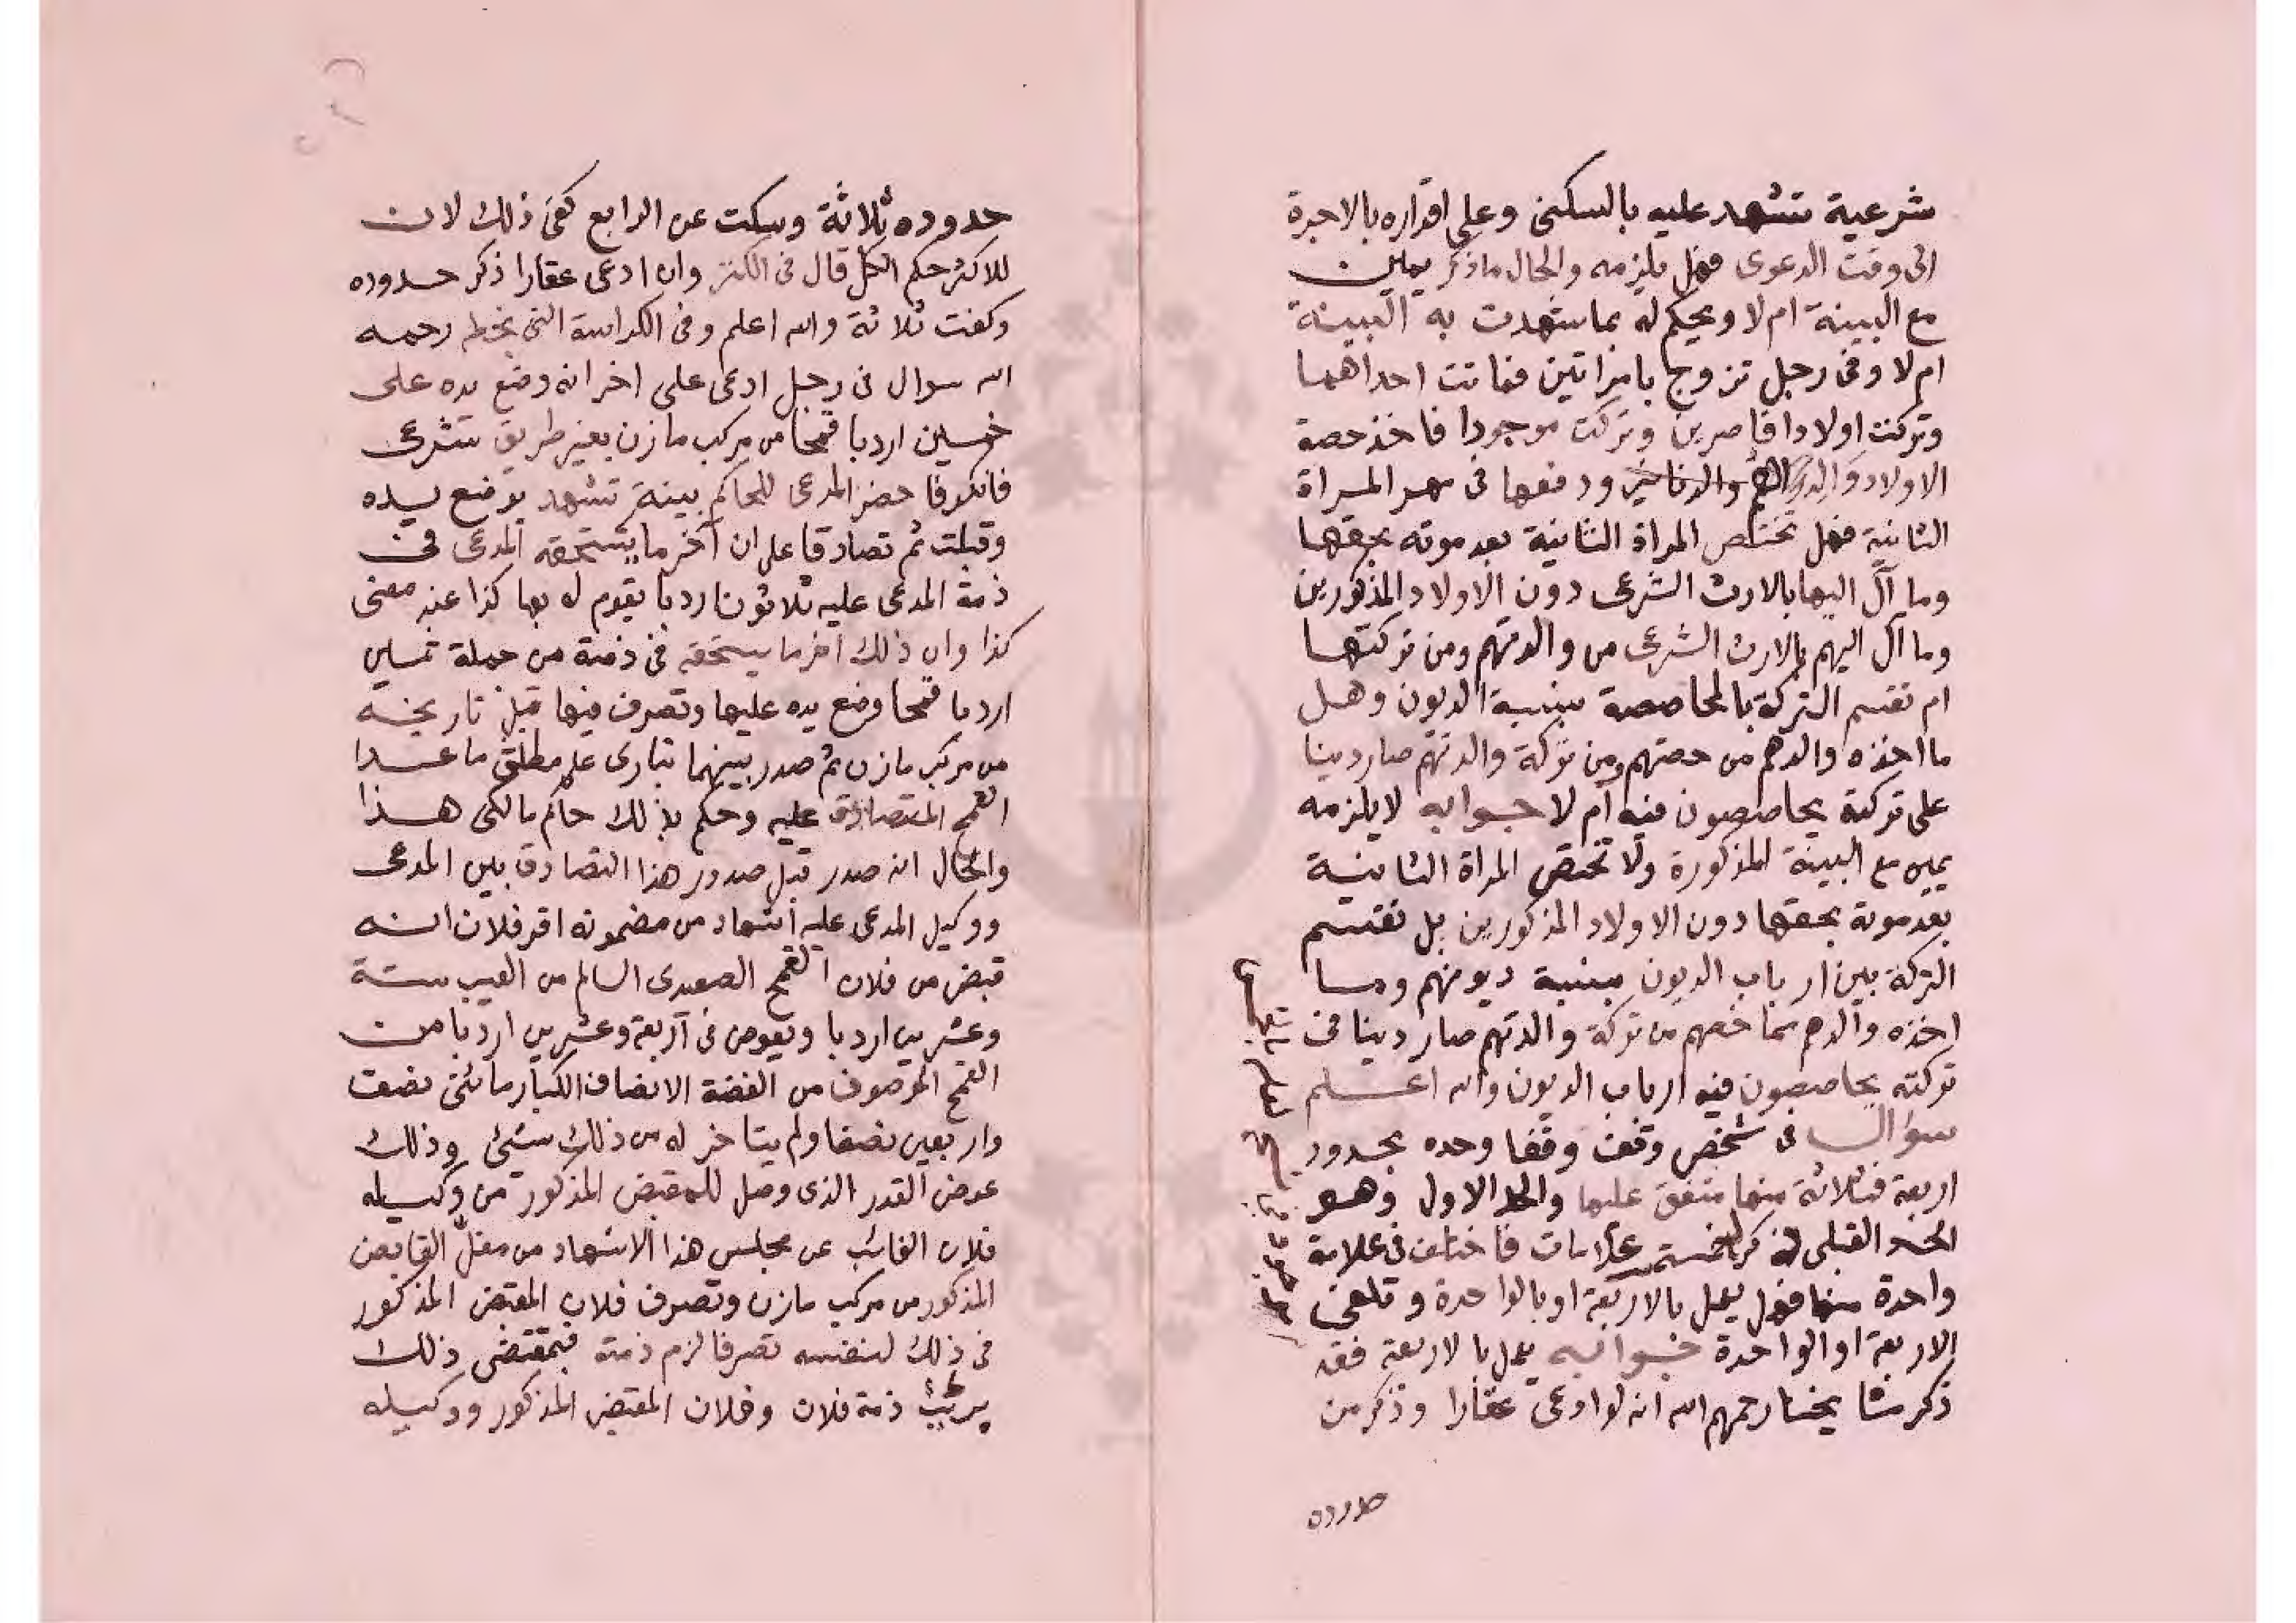 شرعية تشهد عليه بالسكنى وعلى اقراره بالاجرة
الى وقت الدعوى فهل يلزمه والحال ما ذكر يمين
مع البينة ام لا ويحكم له بما شهدت به البينة
ام لا وفى رجل تزوج بامراتين فماتت احداهما
وتركت اولادا قاصرين وتركت موجودا فاخذ حصة
الاولاد والدهم ودفعها فى مهر المراة
الثانية فهل تختص المراة الثانية بعد موته بحقها
وما آل اليها بالارث الشرعى دون الاولاد المذكورين
وما آل اليهم بالارث الشرعى من والدتهم ومن تركتها
ام تقتسم التركة بالمحاصصة بنسبة الديون وهل
ما اخذه والدهم من حصتهم ومن تركة والدتهم صار دينا
على تركته يحاصصون فيه ام لا جوابه لا يلزمه
يمين مع البينة المذكورة ولا تختص المراة الثانية
بعد موته بحقها دون الاولاد المذكورين بل تقتسم
التركة بين ارباب الديون بنسبة ديونهم وما
اخذه والدهم مما خصهم من تركة والدتهم صار دينا فى
تركته يحاصصون فيه ارباب الديون والله اعلم
سؤال فى شخص وقف وقفا وحده بحدود
اربعة فثلاثة منها متفق عليها والحد الاول وهو
الحد القبلى ذكر خمسة علامات فاختلف فى علامة
واحدة منها فهل يعمل بالاربعة او بالواحدة وتلغى
الاربعة او الواحدة جوابه يعمل بالاربعة فقد
ذكر مشايخنا رحمهم الله انه لو ادعى عقارا وذكر من
حدوده
حدوده ثلاثة وسكت عن الرابع كفى ذلك لان
للاكثر حكم الكل قال فى الكنز وان ادعى عقارا ذكر حدوده
وكفت ثلاثة والله اعلم وفى الكراسة التى بخط رحمه
الله سوال فى رجل ادعى على اخر انه وضع يده على
خمسين اردبا قمحا من مركب مازن بغير طريق شرعى
فانكر فاحضر المدعى للحاكم بينة تشهد بوضع يده
وقبلت ثم تصادقا على ان آخر ما يستحقه المدعى فى
ذمة المدعى عليه ثلاثون اردبا يقوم له بها كذا عند مضى
كذا وان ذلك اخر ما يستحقه فى ذمته من جملة خمسين
اردبا قمحا وضع يده عليها وتصرف فيها قبل تاريخه
من مركب مازن ثم صدر بينهما تبارى علم مطلق ما عدا
القمح المتصادق عليه وحكم بذلك حاكم مالكى هذا
والحال انه صدر قبل صدور هذا التصادق بين المدعى
ووكيل المدعى عليه اشهاد من مضمونه اقر فلان انه
قبض من فلان القمح الصعيدى السالم من العيب ستة
وعشرين اردبا وتعوض فى اربعة وعشرين اردبا من
القمح الموصوف من الفضة الانصاف الكبار مائتى نصف
واربعين نصفا ولم يتاخر له من ذلك شئ وذلك
عوض القدر الذى وصل للمقبض المذكور من وكيله
فلان الغائب عن مجلس هذا الاشهاد من مغل القابض
المذكور من مركب مازن وتصرف فلان المقبض المذكور
فى ذلك لنفسه تصرفا لزم ذمته فبمقتضى ذلك
برئت ذمة فلان وفلان المقبض المذكور ووكيله